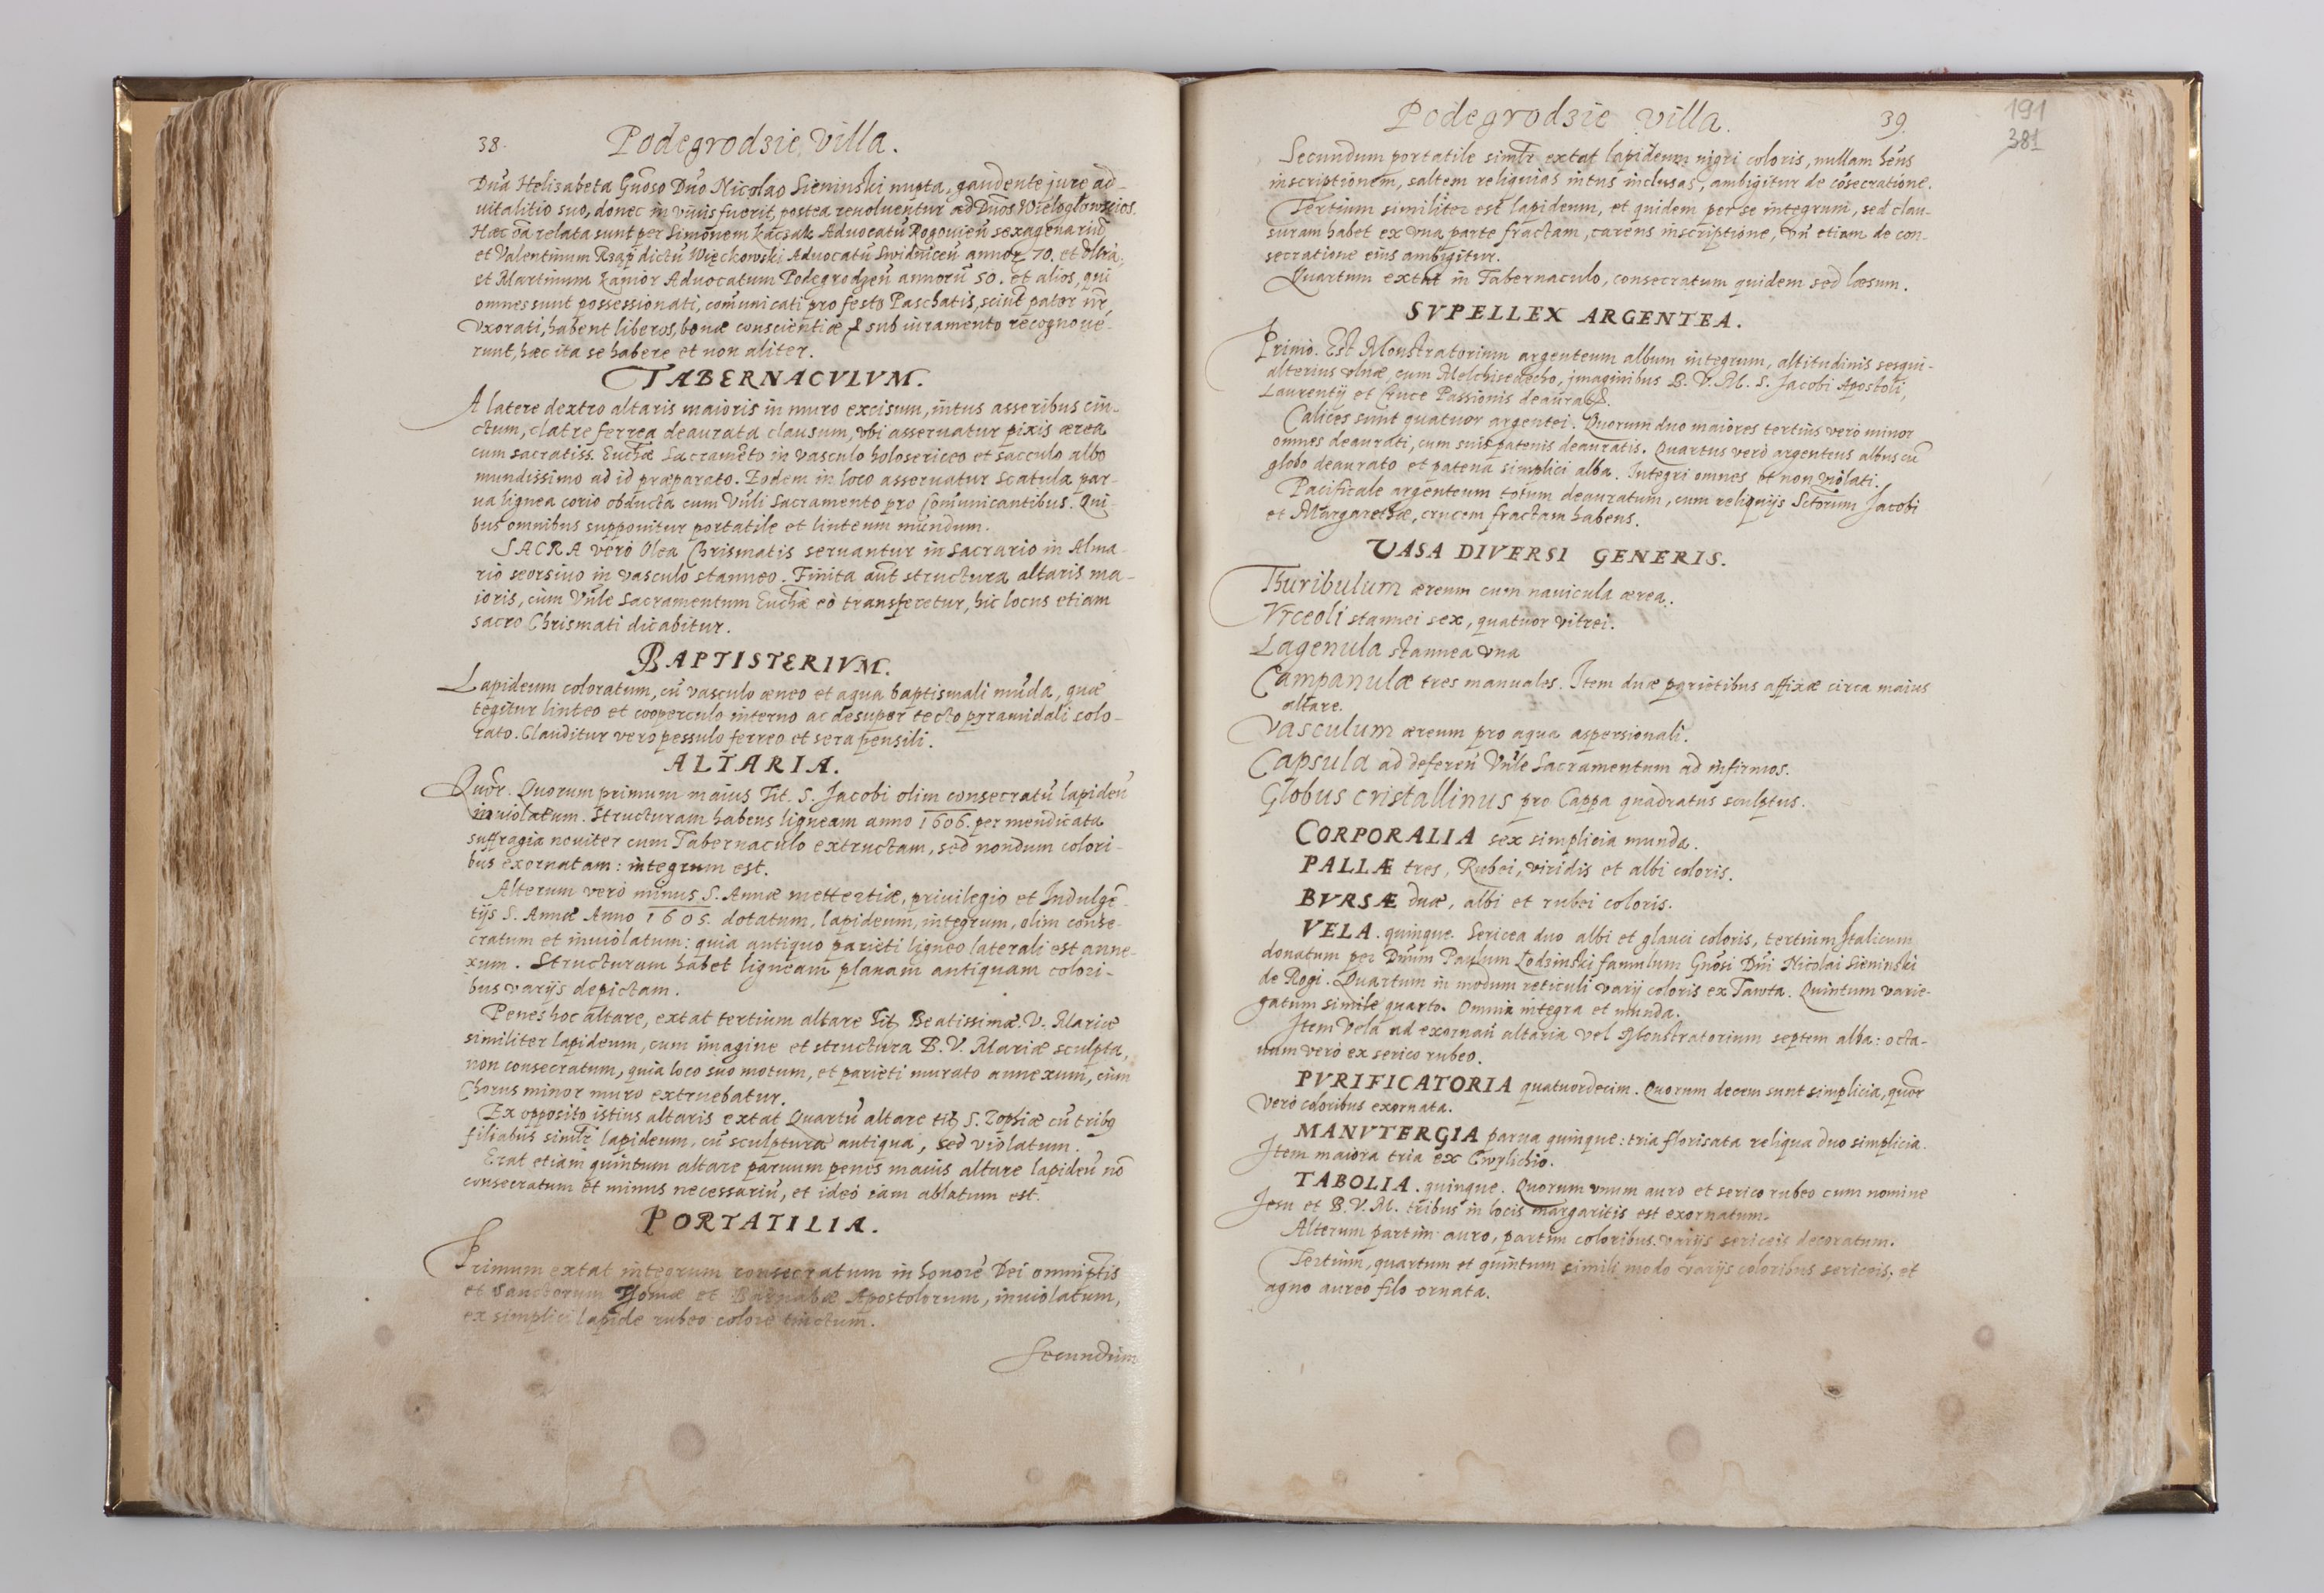 38.
Podegrodzie villa.
Dña Helisabeta Gñoso Dño Nicolao Sieninski nupta, gaudente jure ad-
uitalitio suo, donec in viuis fuerit, postea reuoluentur ad Dños Wielogłowscios.
Hæc oã relata sunt per Simonem kaczak Aduocatũ Rogouieñ sexagenariũ,
et Valentinum Rząp dictũ Więckowski Aduocatũ Swidniceñ annoꝝ 70. et vltra,
et Martinum kanior Aduocatum Podegrodzeñ annorũ 50. et alios, qui
omnes sunt possessionati, com̃unicati pro festo Paschatis, sciũt pater nr̃,
Vxorati, habent liberos, bonæ conscientiæ, & sub iuramento recognoue-
runt, hæc ita se habere et non aliter.
TABERNACVLVM.
A latere dextro altaris maioris in muro excisum, intus asseribus cin-
ctum, clatre ferrea deaurata clausum, vbi asseruatur pixis ærea
cum sacratiss. Euchæ Sacramẽto in vasculo holosericeo et sacculo albo
mundissimo ad id præparato. Eodem in loco asseruatur scatula par-
ua lignea corio obducta cum Vñli Sacramento pro com̃unicantibus. Qui-
bus omnibus supponitur portatile et linteum mundum.
SACRA verò Olea Chrismatis seruantur in sacrario in Alma-
rio seorsiuo in vasculo stanneo. Finita aũt structura altaris ma-
ioris, cùm Vñle Sacramentum Euchæ eò transferetur, hic locus etiam
sacro Chrismati dicabitur.
BAPTISTERIVM.
Lapideum coloratum, cũ vasculo æneo et aqua baptismali mũda, quæ
tegitur linteo et cooperculo interno ac desuper tecto pyramidali colo-
rato. Clauditur vero pessulo ferreo et sera pensili.
ALTARIA.
Quõr. Quorum primum maius Tit. S. Jacobi olim consecratũ lapideũ
inuiolatum. Structuram habens ligneam anno 1606. per mendicata
suffragia nouiter cum Tabernaculo extructam, sed nondum colori-
bus exornatam: integrum est.
Alterum verò minus S. Annæ mettertiæ, privilegio et Indulgẽ-
tijs S. Annæ Anno 1605. dotatum, lapideum, integrum, olim conse-
cratum et inuiolatum: quia antiquo parieti ligneo laterali est anne-
xum. Structuram habet ligneam planam antiquam colori-
bus varijs depictam.
Penes hoc altare, extat tertium altare Tit. Beatissimæ. V. Mariæ
similiter lapideum, cum imagine et structura B. V. Mariæ sculpta,
non consecratum, quia loco suo motum, et parieti murato annexum, cùm
Chorus minor muro extruebatur.
Ex opposito istius altaris extat Quartũ altare tit. S. Zophiæ cũ tribꝯ
filiabus simlr̃ lapideum, cũ sculptura antiqua, sed violatum.
Erat etiam quintum altare paruum penes maius altare lapideũ nõ
consecratum et minus necessariũ, et ideò iam ablatum est.
PORTATILIA.
Primum extat integrum consecratum in honorẽ Dei omnipt̃is
et Sanctorum Thomæ et Barnabæ Apostolorum, inuiolatum,
ex simplici lapide rubeo colore tinctum.
Secundum
191
381
Podegrodzie villa.
39.
Secundum portatile simlr̃ extat lapideum nigri coloris, nullam hẽns
inscriptionem, saltem reliquias intus inclusas, ambigitur de cõsecratione.
Tertium similiter est lapideum, et quidem per se integrum, sed clau-
suram habet ex vna parte fractam, carens inscriptione, vñ etiam de con-
secratione eius ambigitur.
Quartum extat in Tabernaculo, consecratum quidem sed læsum.
SVPELLEX ARGENTEA.
Primò. Est Monstratorium argenteum album integrum, altitudinis sesqui-
alterius vlnæ, cum Melchisedecho, imaginibus B. V. M. S. Jacobi Apostoli,
Laurentij et Cruce Passionis deauratꝭ.
Calices sunt quatuor argentei. Quorum duo maiores tertius verò minor
omnes deaurati, cum suis patenis deauratis. Quartus verò argenteus albus cũ
globo deaurato et patena simplici alba. Integri omnes et non violati.
Pacificale argenteum totum deauratum, cum reliquijs Sctorum Jacobi
et Margarethæ, crucem fractam habens.
VASA DIVERSI GENERIS.
Thuribulum æreum cum nauicula ærea.
Vrceoli stannei sex, quatuor vitrei.
Lagenula stannea vna
Campanulæ tres manuales. Item duæ parietibus affixæ circa maius
altare.
Vasculum æreum pro aqua aspersionali.
Capsula ad defereñ Vñle Sacramentum ad infirmos.
Globus cristallinus pro Cappa quadratus sculptus.
CORPORALIA sex simplicia munda.
PALLÆ tres, Rubei, viridis et albi coloris.
BVRSÆ duæ, albi et rubei coloris.
VELA. quinque. Sericea duo albi et glauci coloris, tertium Italicum
donatum per Dñum Paulum Lodzinski famulum Gñosi Dñi Nicolai Sieninski
de Rogi. Quartum in modum reticuli varij coloris ex Tawta. Quintum varie-
gatum simile quarto. Omnia integra et munda.
Item Vela ad exornañ altaria vel Monstratorium septem alba: octa-
uum verò ex serico rubeo.
PVRIFICATORIA quatuordecim. Quorum decem sunt simplicia, quõr
verò coloribus exornata.
MANVTERGIA parua quinque: tria florisata reliqua duo simplicia.
Item maiora tria ex Cwylichio.
TABOLIA. quinque. Quorum vnum auro et serico rubeo cum nomine
Jesu et B. V. M. tribus in locis margaritis est exornatum.
Alterum partim auro, partim coloribus varijs sericeis decoratum.
Tertium, quartum et quintum simili modo varijs coloribus sericeis, et
agno aureo filo ornata.